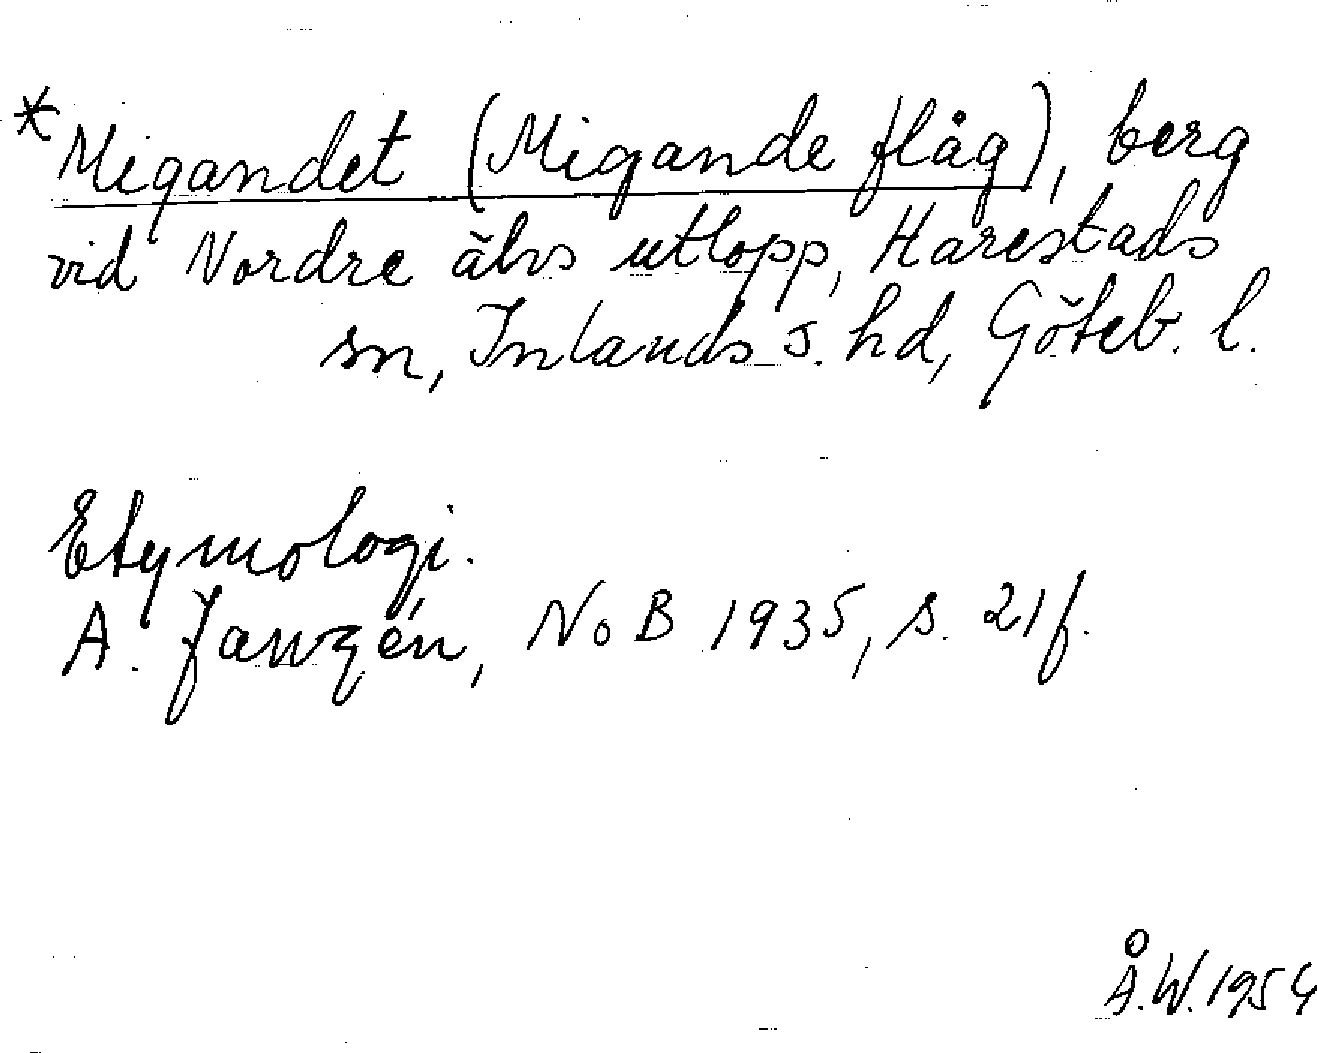 *Migandet (Migande flåg), berg
vid Nordre älvs utlopp, Harestads
sn, Inlands s. hd, Göteb. l.
Etymologi.
A. Janzén, NoB 1935, s. 21f.
Å.W. 1954